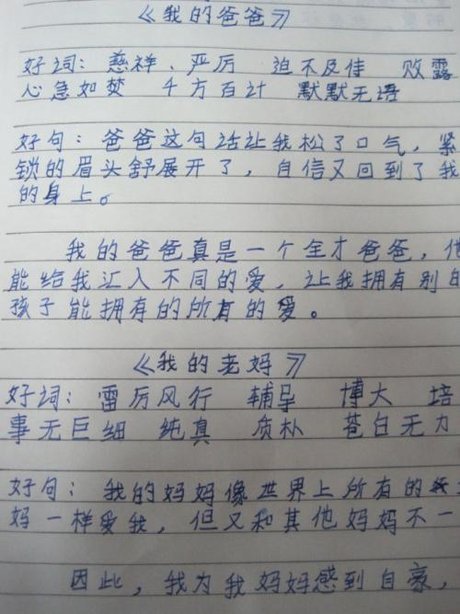 《我的爸爸》
好词：慈祥、严厉 迫不及待 败露
心急如焚 千方百计 默默无语
好句：爸爸这句话让我松了口气，紧
锁的眉头舒展开了，自信又回到了我
的身上。
我的爸爸真是一个全才爸爸，他
能给我汇入不同的爱，让我拥有别的
孩子能拥有的所有的爱。
《我的老妈》
好词：雷厉风行 辅导 博大 培
事无巨细 纯真 质朴 苍白无力
好句：我的妈妈像世界上所有的
妈一样爱我，但又和其他妈妈不一
因此，我为我妈妈感到自豪，